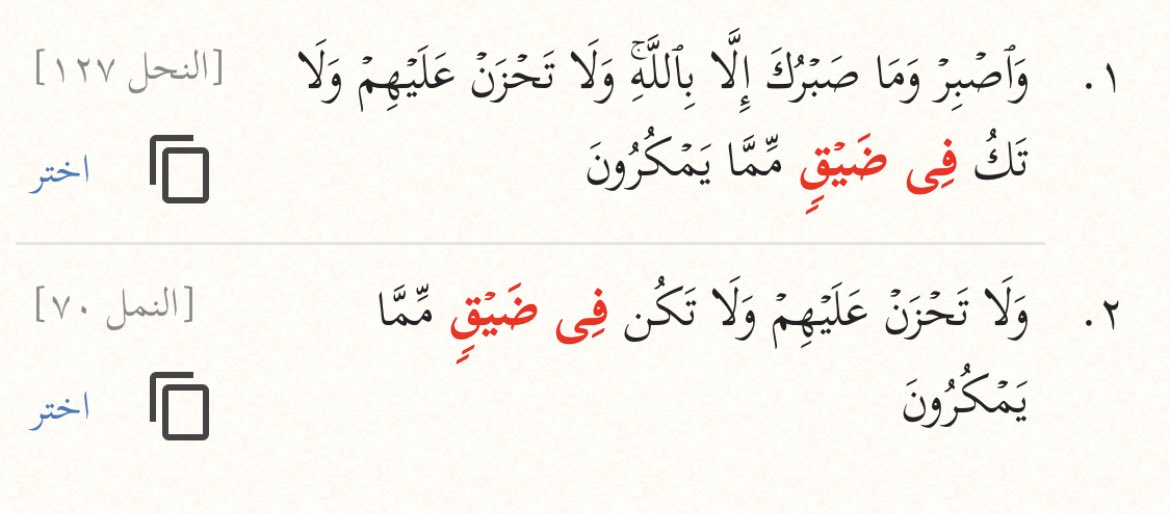 ١. وَٱصۡبِرۡ وَمَا صَبۡرُكَ إِلَّا بِٱللَّهِۚ وَلَا تَحۡزَنۡ عَلَيۡهِمۡ وَلَا [النحل ١٢٧]
تَكُ فِى ضَيۡقٍۢ مِّمَّا يَمۡكُرُونَ اختر
٢. وَلَا تَحۡزَنۡ عَلَيۡهِمۡ وَلَا تَكُن فِى ضَيۡقٍۢ مِّمَّا [النمل ٧٠]
يَمۡكُرُونَ اختر